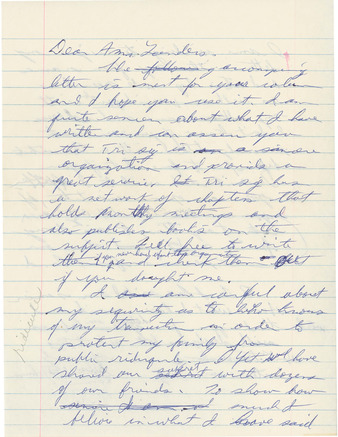 Dear Ann Landers.
The following accompaning
letter is ment for your colum
and I hope you use it. I am
quite sincere about what I have
written and can assure you
that Tri Sig is on a sincere
organization and provides a
great service. Tri Sig has
a network of chapters that
holds monthly meetings and
also publishes books on the
subject. Feel free to write
them and check them out
if you doubt me.
I am careful about
my security as to who knows
of my in order to
protect my family from
public ridicule. Yet we have
shared our subject with dozens
of our friends. To show how
much I
believe in what I have said
ridicule